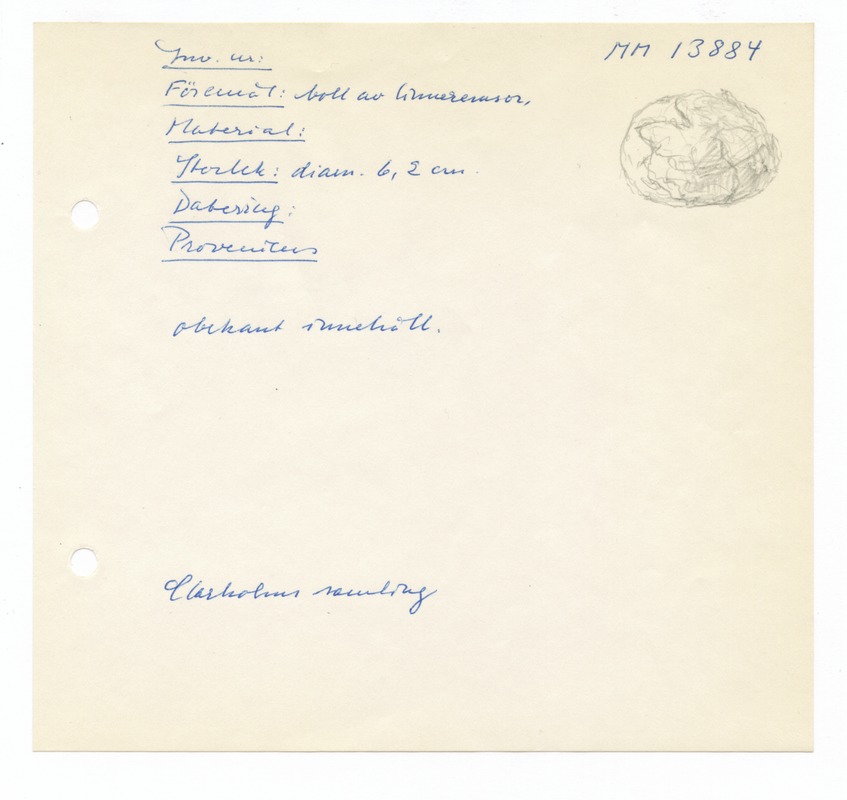 Inv. nr: MM 13884
Föremål: boll av linneremsor.
Material:
Storlek: diam. 6,2 cm.
Datering:
Proveniens
obekant innehåll.
Clarholms samling